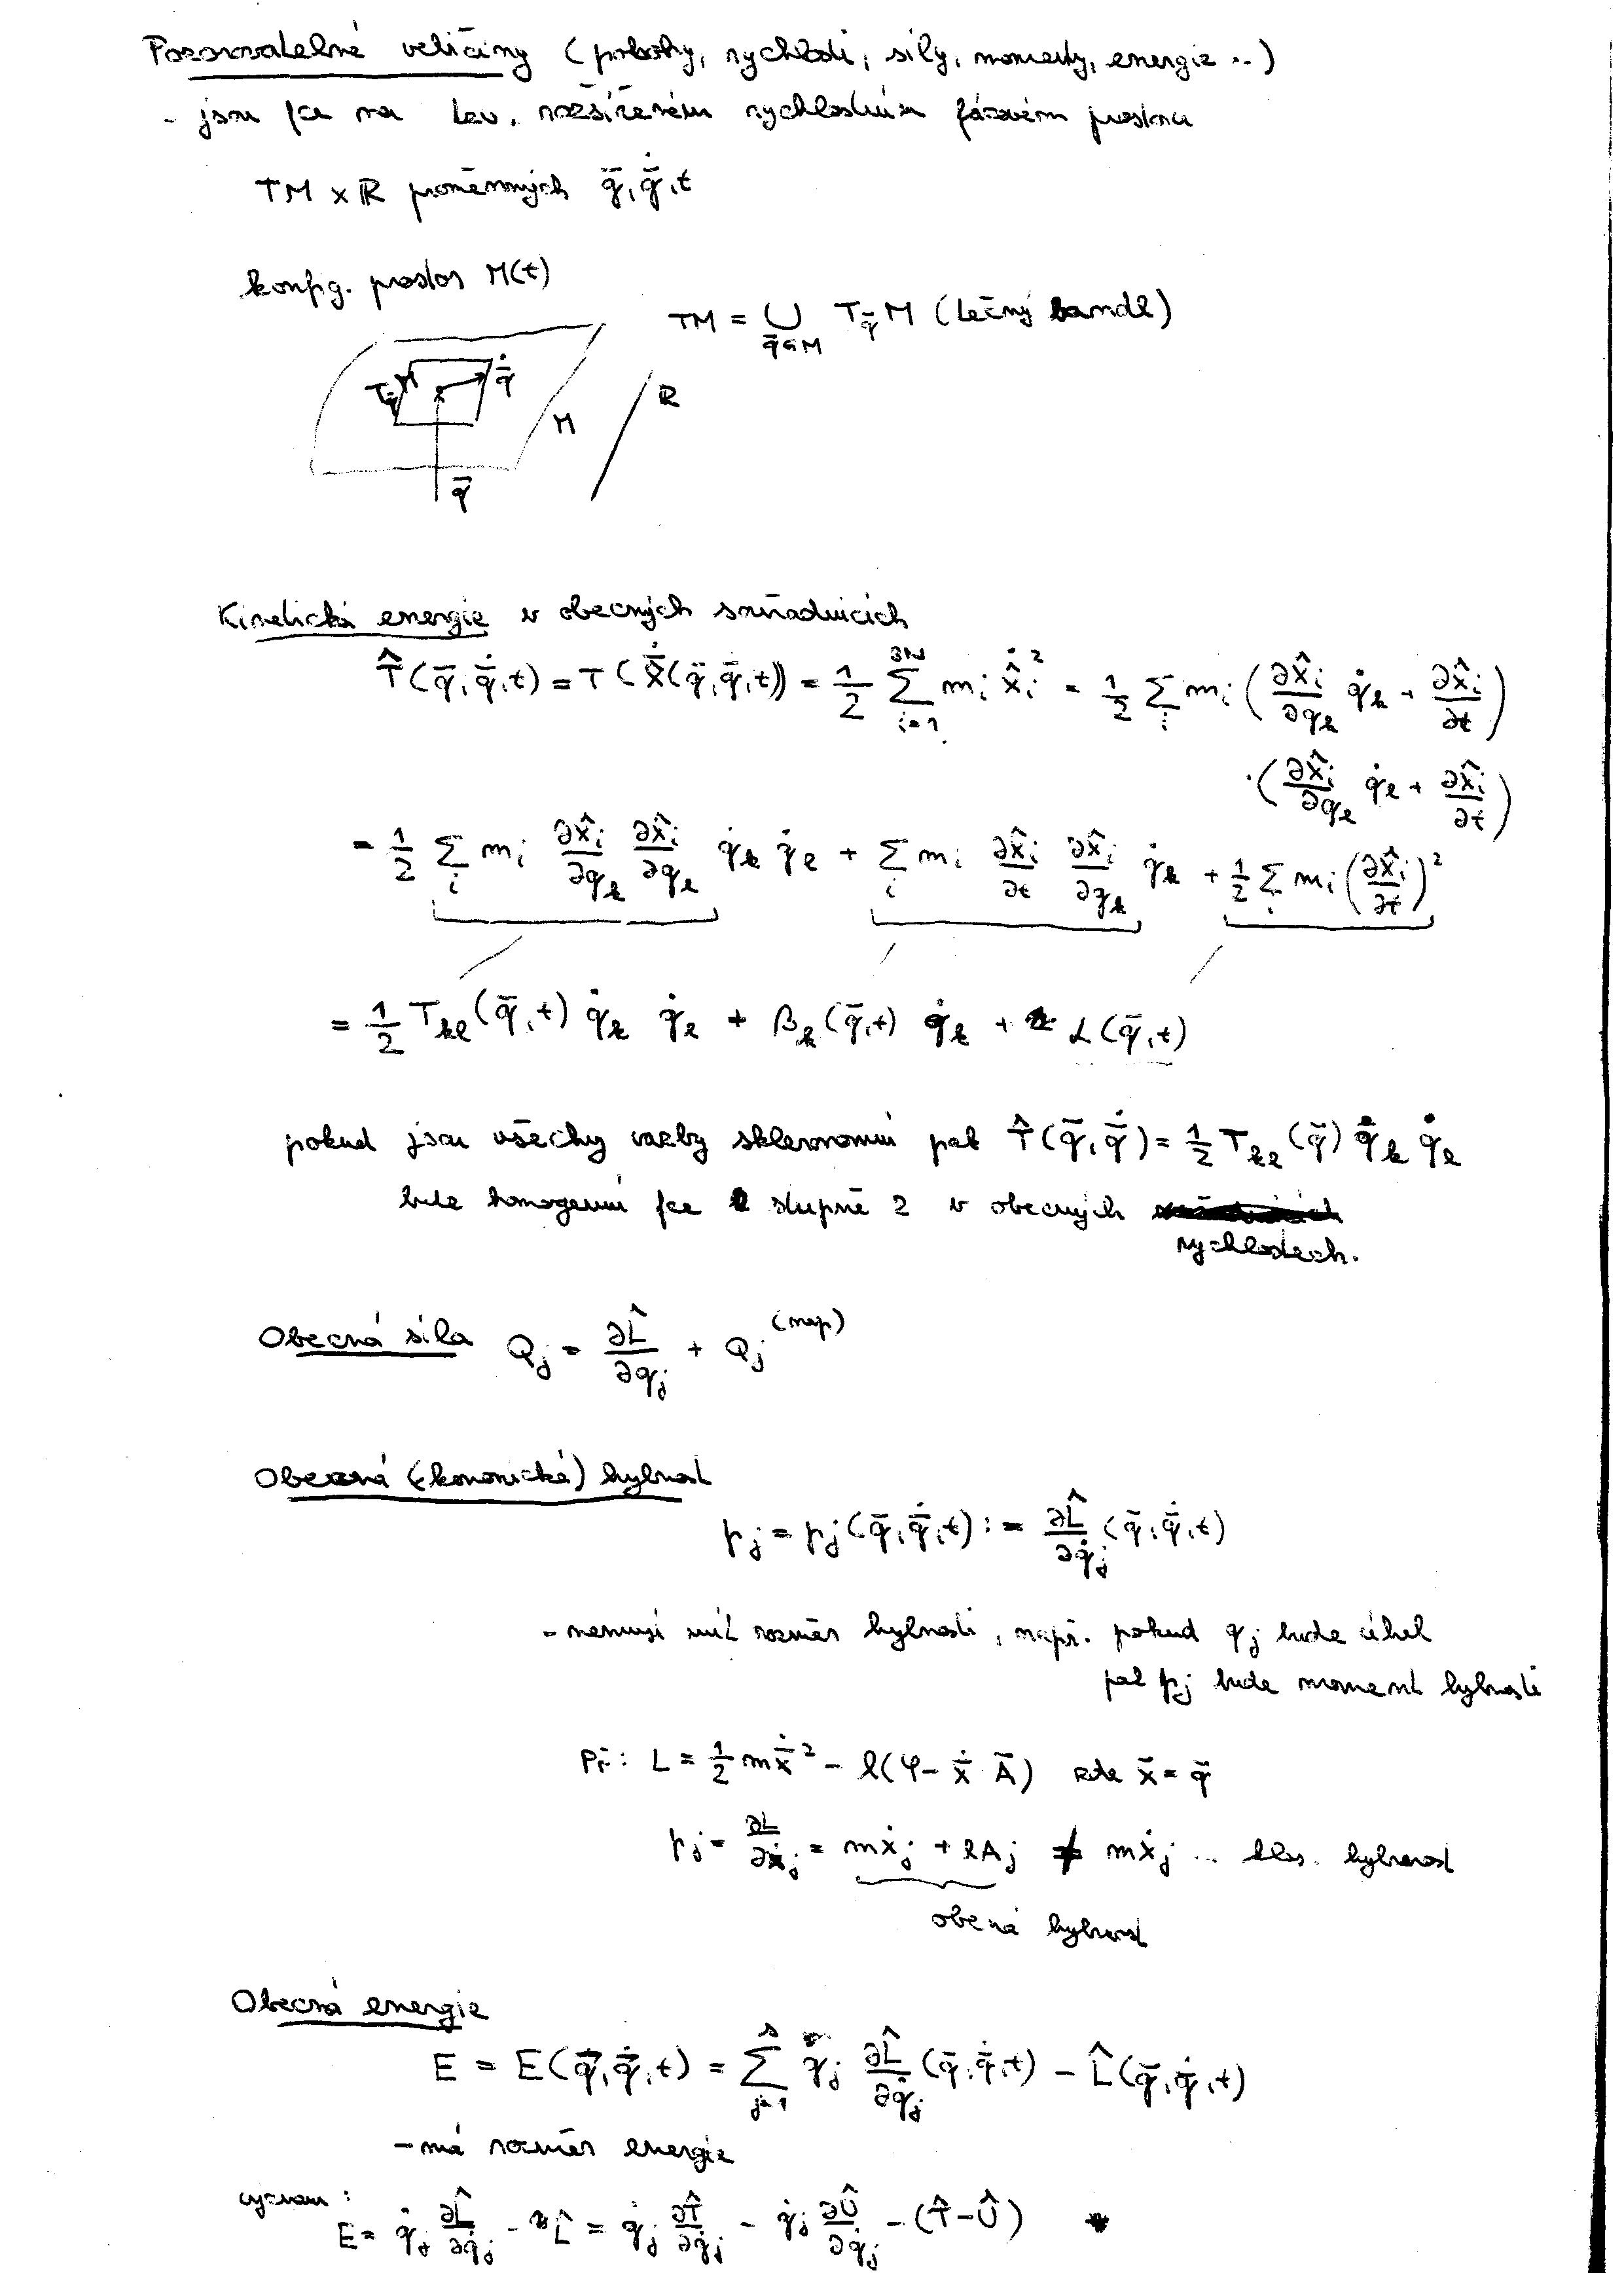 Pozorovatelné veličiny (polohy, rychlosti, síly, momenty, energie ..)
- jsou fce na tzv. rozšířeném rychlostním fázovém prostoru
TM × R proměnných q̄, q̄̇, t
konfig. prostor M(t)
TM = ∪_{q̄∈M} T_q̄ M (tečný bandl)
T_q̄ M q̄̇ M R
q̄
Kinetická energie v obecných souřadnicích
T̂(q̄, q̄̇, t) = T(x̄̇(q̄, q̄̇, t)) = 1/2 ∑_{i=1}^{3N} m_i ẋ̂_i² = 1/2 ∑_i m_i (∂x̂_i/∂q_k q̇_k + ∂x̂_i/∂t)
·(∂x̂_i/∂q_l q̇_l + ∂x̂_i/∂t)
= 1/2 ∑_i m_i ∂x̂_i/∂q_k ∂x̂_i/∂q_l q̇_k q̇_l + ∑_i m_i ∂x̂_i/∂t ∂x̂_i/∂q_k q̇_k + 1/2 ∑_i m_i (∂x̂_i/∂t)²
= 1/2 T_kl(q̄, t) q̇_k q̇_l + β_k(q̄, t) q̇_k + α(q̄, t)
pokud jsou všechy vazby skleronomní pak T̂(q̄, q̄̇) = 1/2 T_kl(q̄) q̇_k q̇_l
bude homogenní fce stupně 2 v obecných
rychlostech.
Obecná síla Q_j = ∂L̂/∂q_j + Q_j^(nep)
Obecná (kanonická) hybnost
p_j = p_j(q̄, q̄̇, t) := ∂L̂/∂q̇_j (q̄, q̄̇, t)
- nemusí mít rozměr hybnosti, např. pokud q_j bude úhel
pak p_j bude moment hybnosti
Př: L = 1/2 m x̄̇² - l(φ - x̄̇ Ā) zde x̄ = q̄
p_j = ∂L/∂ẋ_j = mẋ_j + lA_j ≠ mẋ_j ... klas. hybnost
obecná hybnost
Obecná energie
E = E(q̄, q̄̇, t) = ∑_{j=1}^{s} q̇_j ∂L̂/∂q̇_j (q̄, q̄̇, t) - L̂(q̄, q̄̇, t)
- má rozměr energie
význam:
E = q̇_j ∂L̂/∂q̇_j - L̂ = q̇_j ∂T̂/∂q̇_j - q̇_j ∂Û/∂q̇_j - (T̂ - Û)